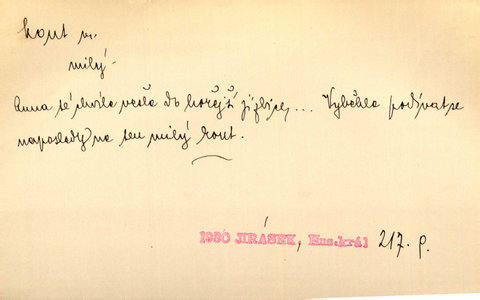 kout m.
milý
Anna té chvíle vešla do hořejší jizbice, ... Vyběhla podívat se
naposledy na ten milý kout.
1930 JIRÁSEK, Hus.král 217. p.